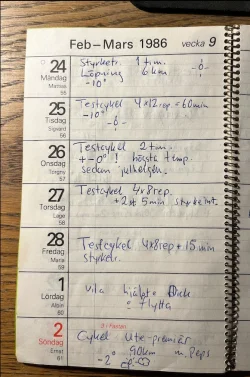 Feb – Mars 1986 vecka 9
24 Styrketr. 1 tim.
Måndag Löpning 6 km
Mattias -10°
55
25 Testcykel 4x12 rep. = 60 min
Tisdag -10°
Sigvard
56
26 Testcykel 2 tim.
Onsdag +-0° ! högsta temp.
Torgny sedan julhelgen.
57
27 Testcykel 4x8 rep.
Torsdag + 2 st 5 min
Lage
58
28 Testcykel 4x8 rep + 15 min
Fredag styrketr.
Maria
59
1 vila hjälpt
Lördag flytta
Albin
60
2 3 i Fastan
Söndag Cykel Ute-premiär
Ernst -2° 90 km m. Peps
61